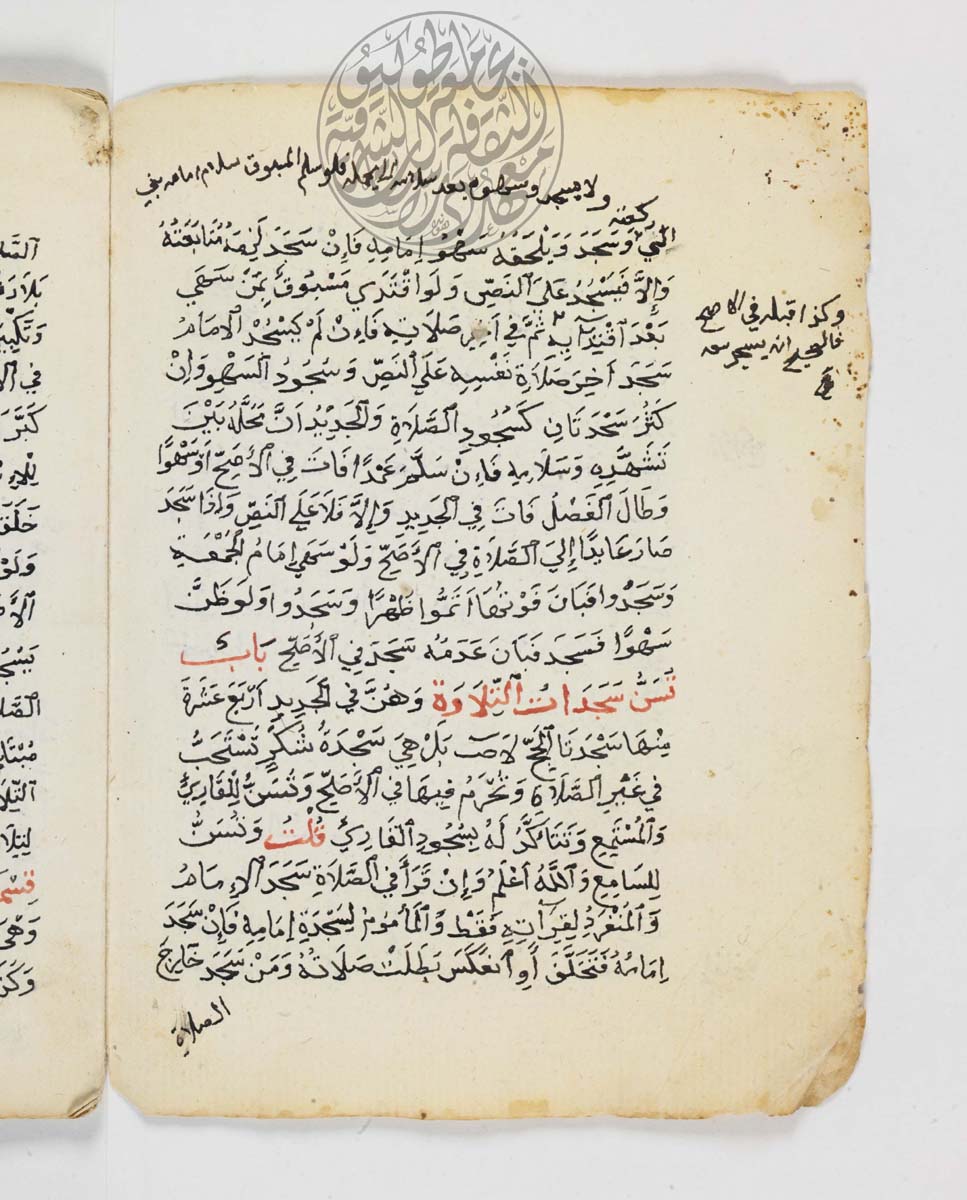 ولا يسجد وسهوه بعد سلامه لا يحمله فلو سلم المسبوق سلام امامه بنى
وسجد ويلحقه سهو إمامه فإن سجد لزمه متابعته
وإلا فيسجد على النص ولو اقتدي مسبوق بمن سهي
بعد اقتدآيه ثم في اخر صلاته فإن لم يسجد الامام
سجد اخر صلاة نفسه علي النص وسجود السهو وإن
كثر سجدتان كسجود الصلاة والجديد ان محله بين
تشهده وسلامه فإن سلم عمدا فات في الأصح أو سهوا
وطال الفصل فات في الجديد وإلا فلا علي النص وإذا سجد
صار عايدا إلي الصلاة في الأصح ولو سهي إمام الجمعة
وسجدوا فبان فوتها اتموا ظهرا وسجدوا ولو ظن
سهوا فسجد فبان عدمه سجد في الأصح باب
تسن سجدات التلاوة وهن في الجديد أربع عشرة
منها سجدتا الحج لا ص بل هي سجدة شكر تستحب
في غير الصلاة وتحرم فيها في الأصح وتسن للقاريُ
والمستمع وتتاكد له بسجود القاريُ قلت وتسن
للسامع والله أعلم وإن قرأ في الصلاة سجد الإمام
والمنفرد لقرآته فقط والمأموم لسجدة إمامه فإن سجد
امامه فتخلف أو انعكس بطلت صلاته ومن سجد خارج
الصلاة
وكذا قبله في الاصح
فالصحيح انه يسجد معه